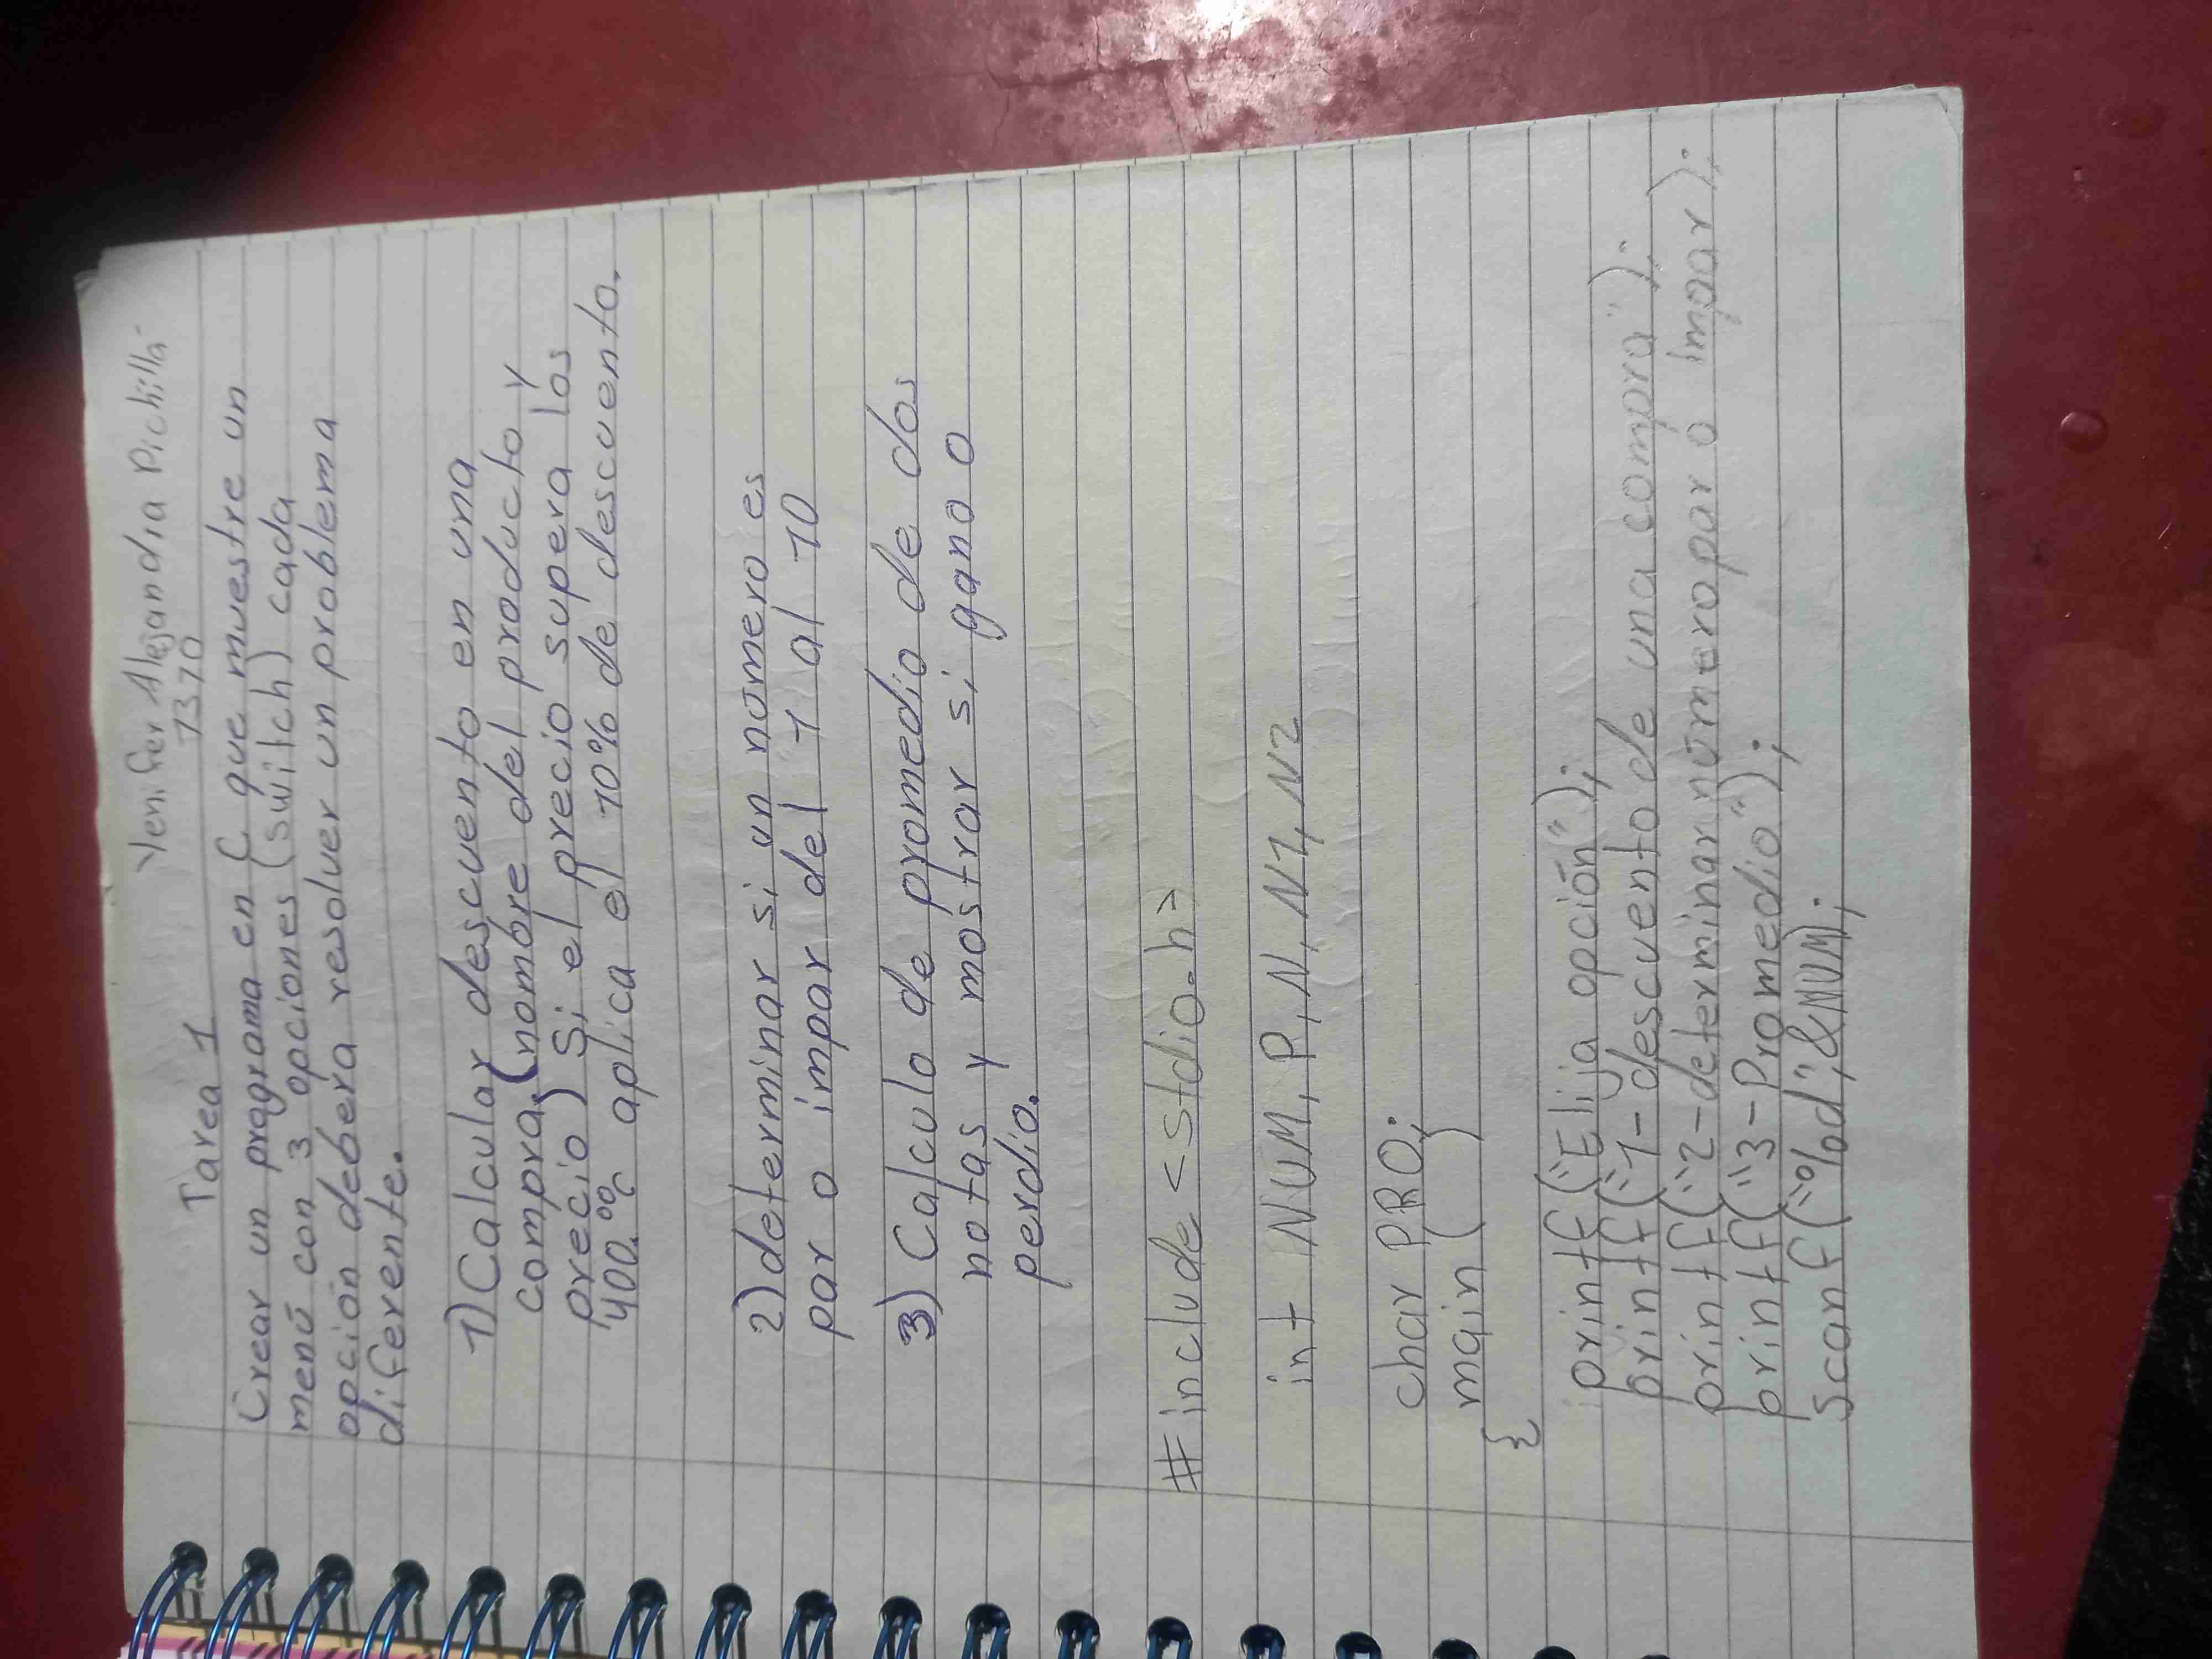 Yenifer Alejandra Pichilla
Tarea 1 1370
Crear un programa en C que muestre un
menú con 3 opciones (switch) cada
opción debera resolver un problema
diferente.
1) Calcular descuento en una
compra, (nombre del producto y
precio) Si el precio supera los
400.°° aplica el 10% de descuento.
2) determinar si un número es
par o impar del 1 al 10
3) Calculo de promedio de dos
notas y mostrar si gano o
perdio.
#include <stdio.h>
int NUM, P, N, N1, N2
char PRO;
main ( )
{
printf ("Elija opción");
printf ("1-descuento de una compra");
printf ("2-determinar número par o impar);
printf ("3-Promedio");
scanf ("%d",&NUM);